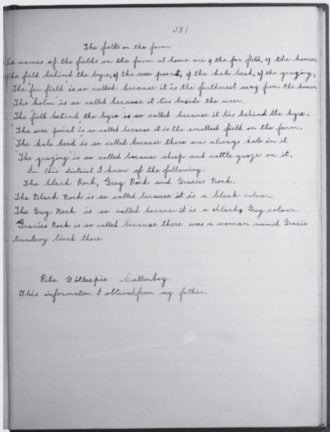 381
The fields on the farm
The names of the fields on the farm at home are of the far field, of the holm
the field behind the byre, of the wee point, of the kale bed, of the grazing.
The far field is so called because it is the furthest away from the house
The holm is so called because it lies beside the river.
The field behind the byre is so called because it lies behind the byre.
The wee point is so called because it is the smallest field on the farm.
The kale bed is so called because there was always kale in it.
The grazing is so called because sheep and cattle graze on it.
In this district I know of the following.
The black Rock, Grey Rock and Gracies Rock.
The Black Rock is so called because it is a black colour.
The Grey Rock is so called because it is a Grey colour.
Gracies Rock is so called because there was a woman named Gracie
lived there.
Rita Gillespie
This information I obtained from my father.